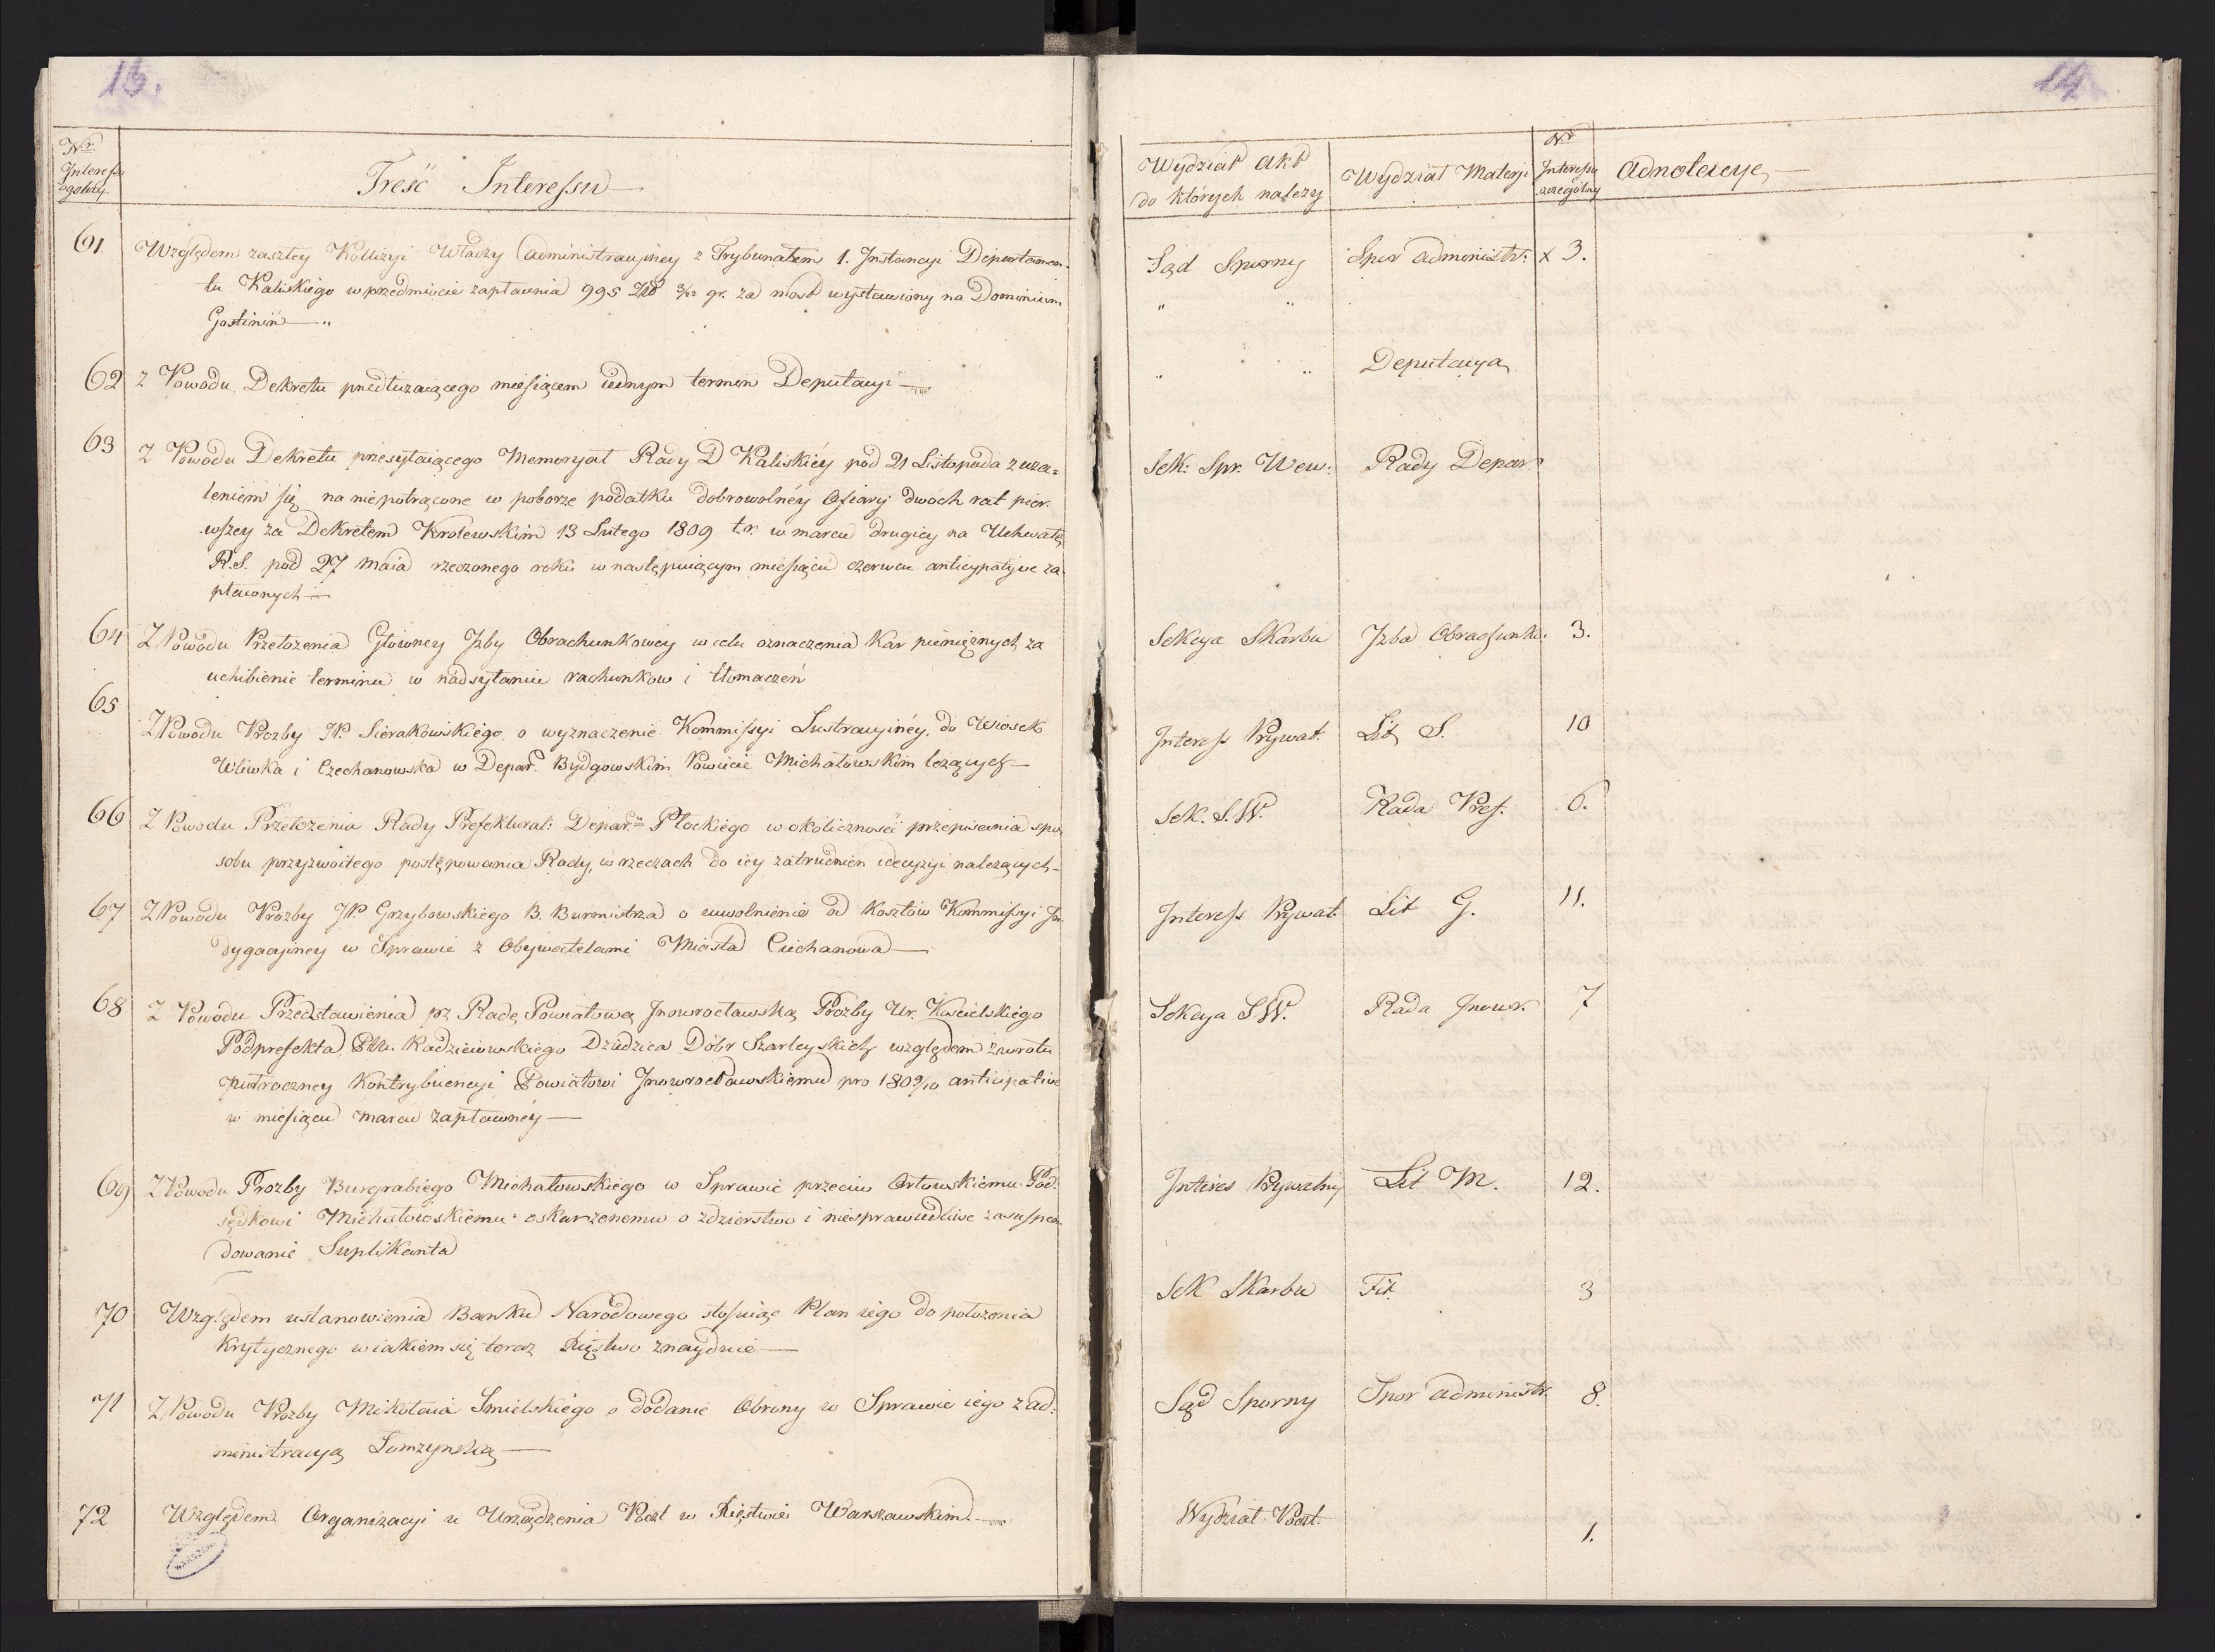 13.
Nr.
Interessu
ogolny.
Treść Interessu
61. Względem zaszłey Kollizyi Władzy Administracyiney z Trybunałem 1. Instancyi Departamen-
tu Kaliskiego w przedmiocie zapłacenia 995 Złł gr. za most wystawiony na Dominium
Gostinin
62 z Powodu Dekretu przedłużaiącego miesiącem iednym termin Deputacyi
63 z Powodu Dekretu przesyłaiącego Memoryał Rady D Kaliskiéy pod 21 Listopada z uża=
leniem się na niepotrącone w poborze podatku dobrowolnéy Ofiary dwóch rat pier-
wszey za Dekretem Krolewskim 13 Lutego 1809 t.r. w marcu drugiey na Uchwałę
R.S. pod 27 Maia rzeczonego roku w następuiącym miesiącu czerwcu anticypatyve za-
płaconych
64 Z Powodu Przełożenia Główney Izby Obrachunkowey w celu oznaczenia Kar pieniężnych za
uchibienie terminu w nadsyłaniu rachunkow i tłomaczeń
65 Z Powodu Prozby JP. Sierakowskiego o wyznaczenie Kommissyi Lustracyinéy, do Wiosek
Wliwka i Czechanowska w Depar. Bydgowskim Powiecie Michałowskim leżących
66 Z Powodu Przełożenia Rady Prefektural: Depar. Płockiego w okoliczności przepisania spo-
sobu przyzwoitego postępowania Rady, w rzeczach do iey zatrudnien i decyzyi należących
67 Z Powodu Prozby JP. Grzybowskiego B. Burmistrza o uwolnienie od Kosztów Kommissyi In-
dygacyiney w Sprawie z Obywatelami Miasta Ciechanowa
68 Z Powodu Przedstawienia pz Radę Powiatową Inowrocławską Prozby Ur. Kościelskiego
Podprefekta Ptu. Radzieiowskiego Dziedzica Dóbr Szarleyskich względem zwrotu
pułroczney Kontrybuencyi Powiatowi Inowrocławskiemu pro 1809/10 anticipative
w miesiącu marcu zapłaconéy
69 Z Powodu Prozby Burgrabiego Michałowskiego w Sprawie przeciw Orłowskiemu Pod-
sędkowi Michałowskiemu oskarzonemu o zdzierstwo i niesprawiedliwe zasuspen-
dowanie Suplikanta
70 Względem ustanowienia Banku Narodowego stosuiąc Plan iego do położenia
krytycznego w iakiem się teraz Xięstwo znayduie
71 Z Powodu Prozby Mikołaia Smielskiego o dodanie Obrony w Sprawie iego z Ad-
ministracyą Łomzynską
72 Względem Organizacyi u Urządzenia Poczt w Xięstwie Warszawskim.
14
Wydział Akt
do których należy
Wydział Materji
Nr
Interessu
szczegulny
Adnotacye
Sąd Sporny Spor administr: x 3.
" "
" " Deputacya
Sek: Spr. Wew: Rady Depar.
Sekcya Skarbu Izba Obrachunk: 3.
Interess Prywat. Lit S. 10
Sek. S.W. Rada Pref. 6.
Interess Prywat Lit G. 11.
Sekcya SW. Rada Inowr. 7
Interes Prywatny Lit M. 12.
Sek Skarbu Fit. 3
Sąd Sporny Spor administr. 8.
Wydział Poczt. 1.